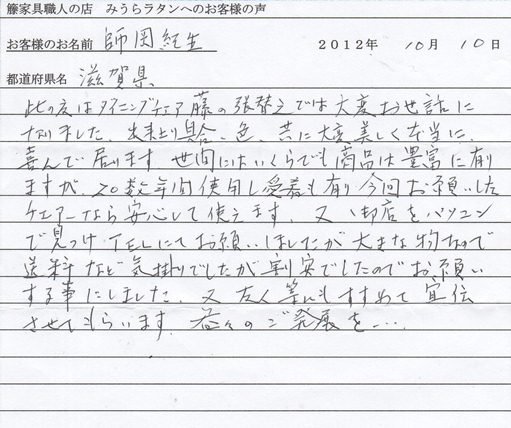 籐家具職人の店　みうらラタンへのお客様の声
お客様のお名前 師岡紀生 2012年 10月 10日
都道府県名 滋賀県
此の度はダイニングチェア藤の張替えでは大変お世話に
なりました。出来上り具合、色、共に大変美しく本当に、
喜んで居ります 世間にはいくらでも商品は豊富に有り
ますが、20数年間使用し愛着も有り今回お願いした
チェアーなら安心して使えます。又、御店をパソコン
で見つけTELにてお願いしましたが大きな物なので
送料など気掛りでしたが割安でしたのでお願い
する事にしました。又友人等にもすすめて宣伝
させてもらいます。益々のご発展を‥‥